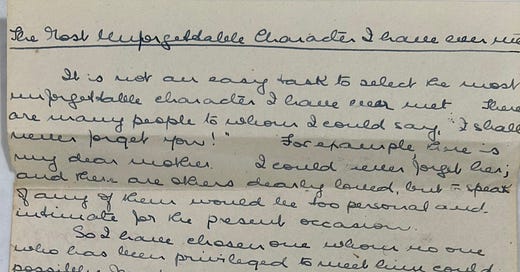 The Most Unforgettable Character I have ever met
It is not an easy task to select the most
unforgettable character I have ever met. There
are many people to whom I could say, "I shall
never forget you!" For example there is
my dear mother. I could never forget her;
and there are others dearly loved, but to speak
of any of them would be too personal and
intimate for the present occasion.
So I have chosen one whom no one
who has been privileged to meet him could
possibly